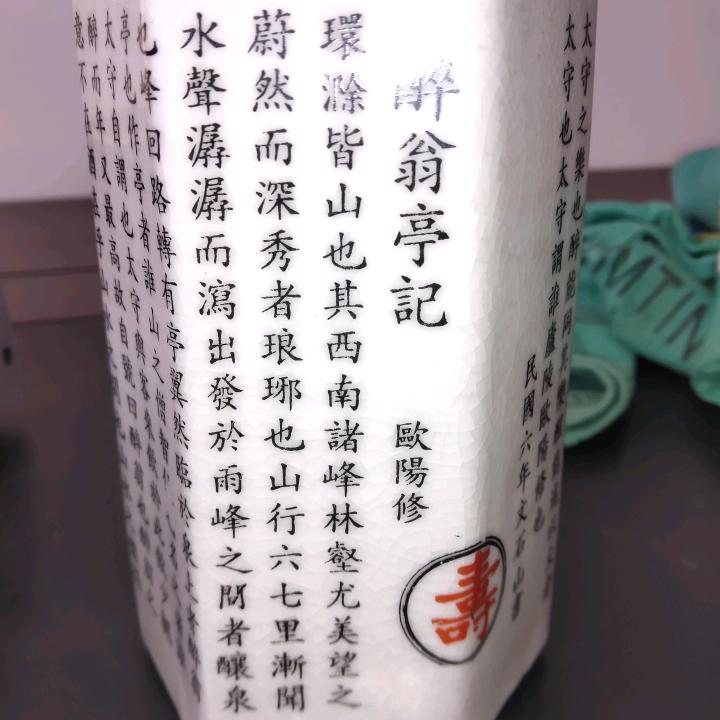 醉翁亭記
歐陽修
壽
環滁皆山也其西南諸峰林壑尤美望之
蔚然而深秀者琅琊也山行六七里漸聞
水聲潺潺而瀉出發於兩峰之間者釀泉
也峰回路轉有亭翼然臨於泉上者
亭也作亭者誰山之僧智
太守自謂也太守與客來飲於此
醉而年又最高故自號曰醉翁也
意不在酒在乎山水之
太守之樂也醉能同其樂
太守也太守謂誰廬陵歐陽修也
民國六年文石山書
MTIN